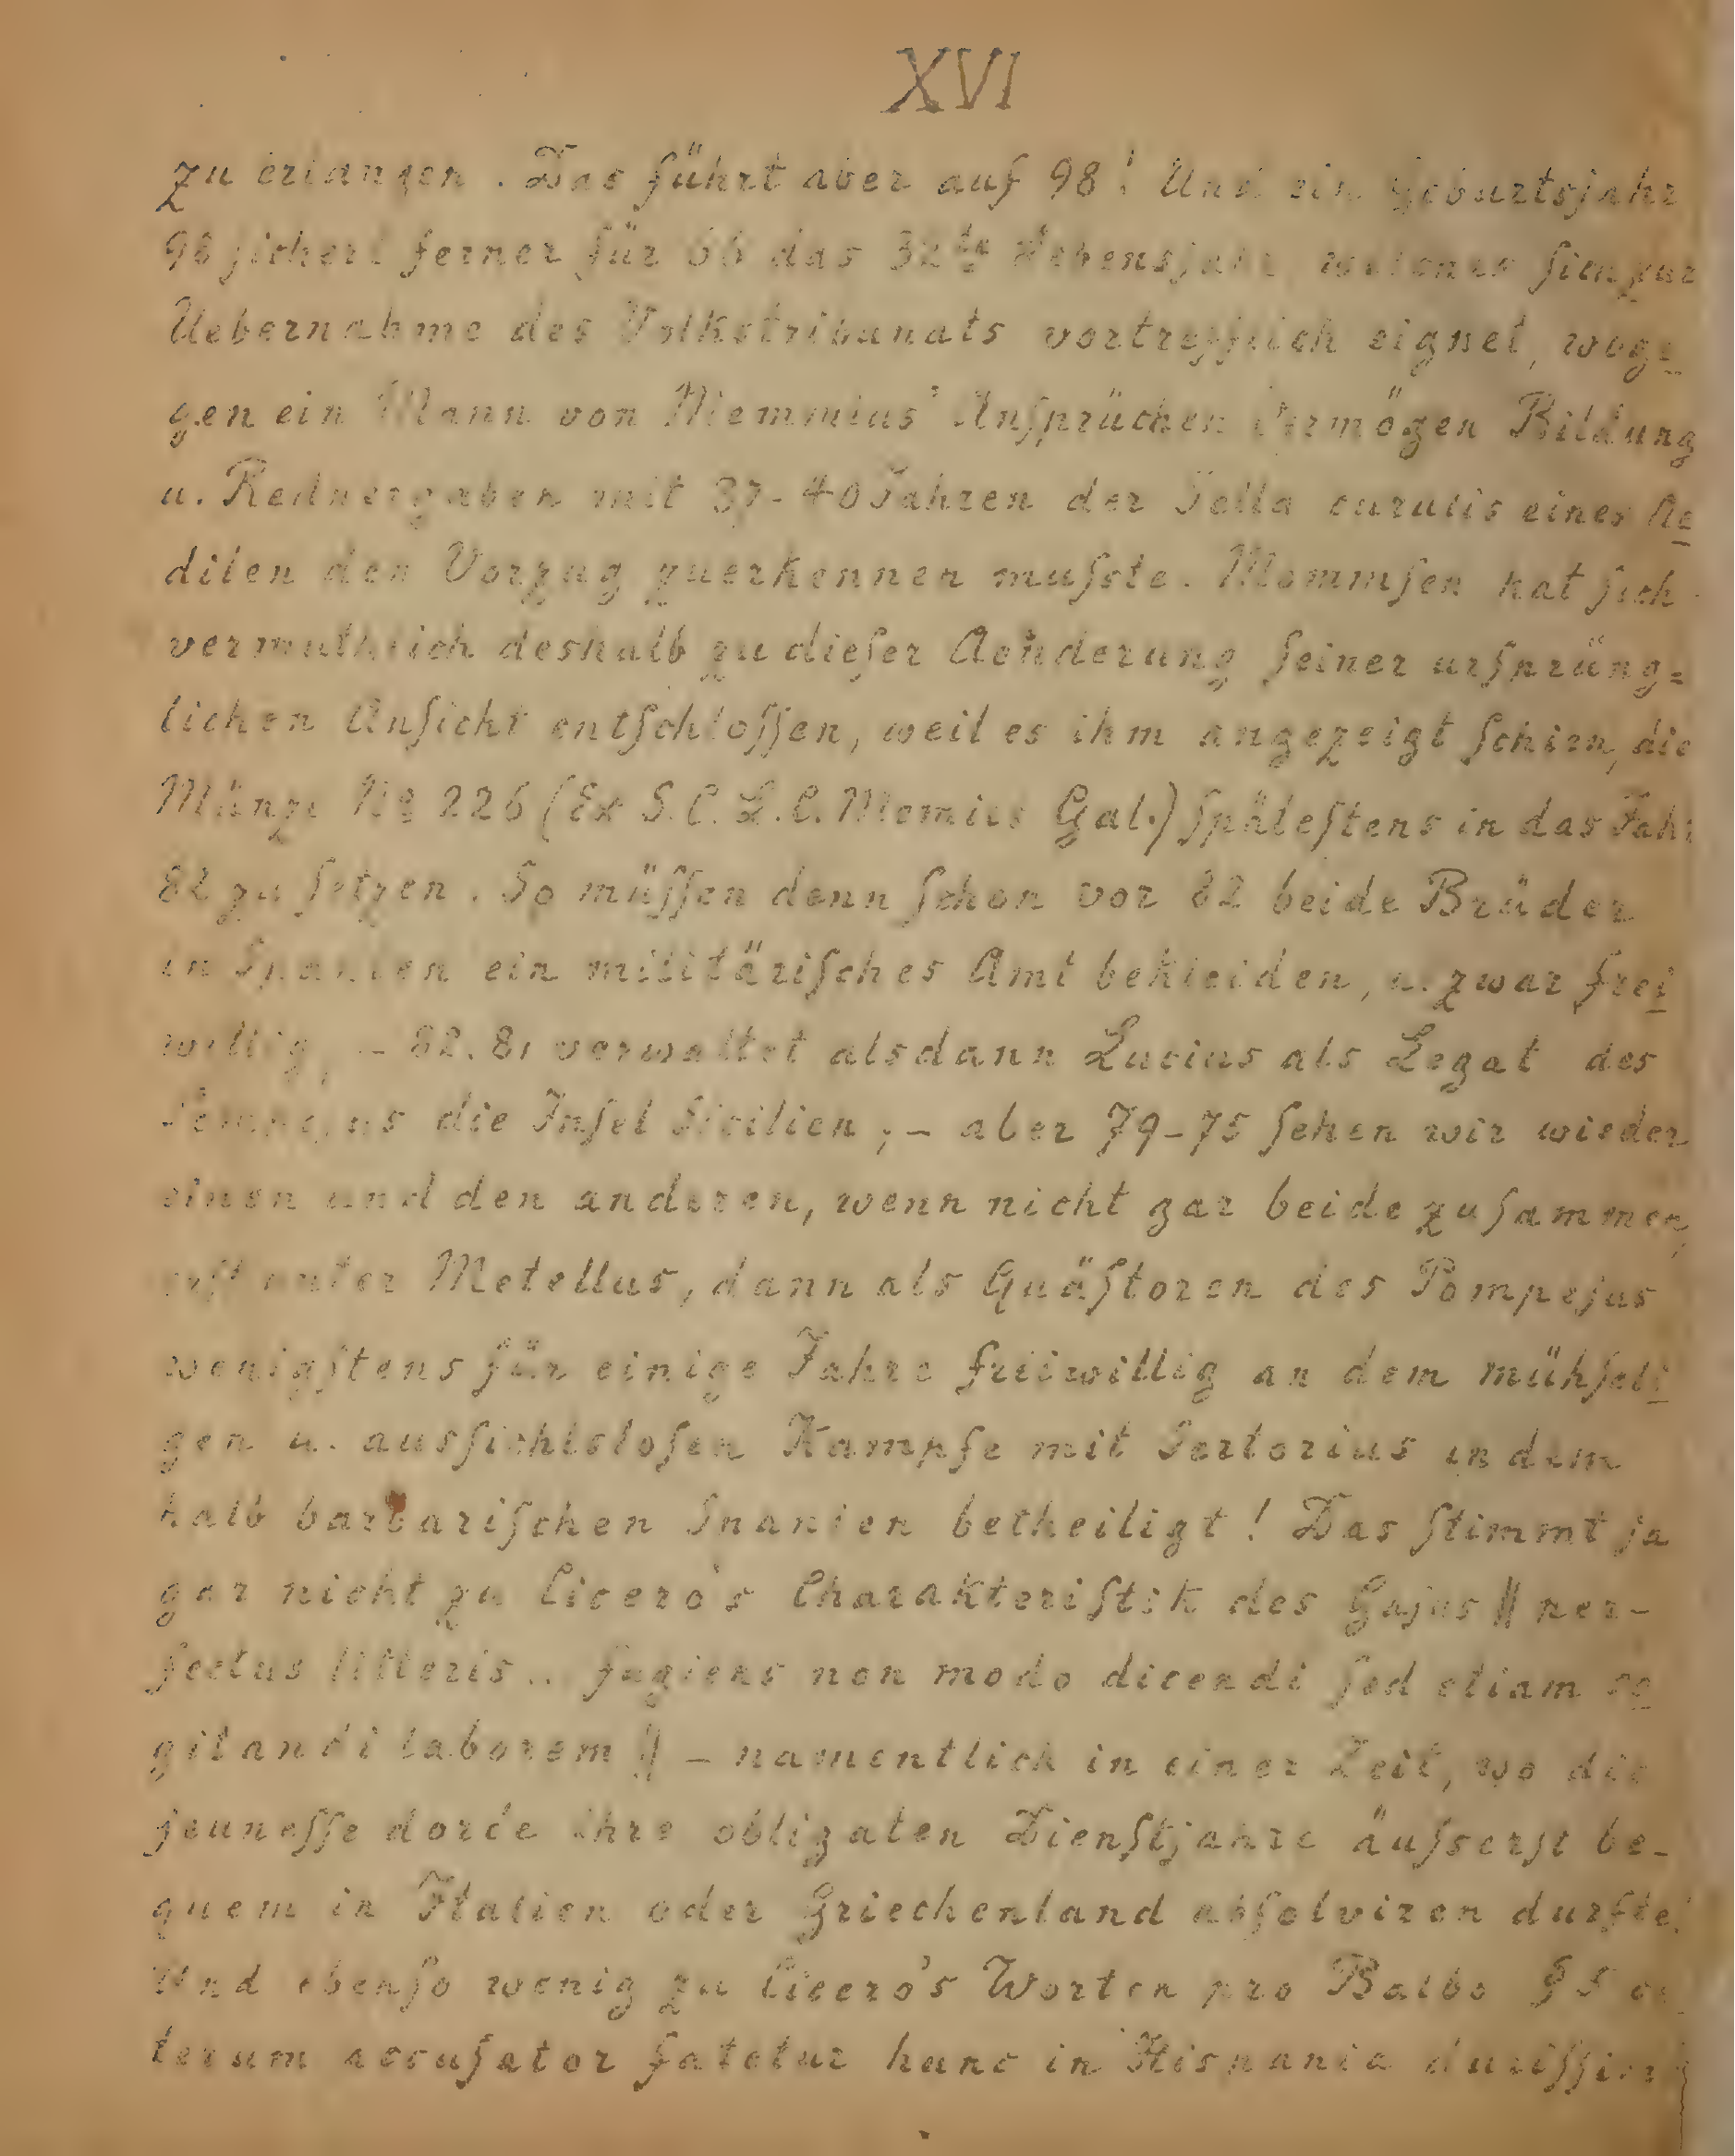 XVI
zu erlangen. Das führt aber auf 98! Und ein Geburtsjahr
98 sichert ferner für 66 das 32te Lebensjahr, welches sich zur
Uebernahme des Volkstribunats vortrefflich eignet, woge
gen ein Mann von Memmius' Ansprüchen Vermögen Bildung
u. Rednergaben mit 37-40 Jahren der Sella curulis eines Ae
dilen den Vorzug zuerkennen musste. Mommsen hat sich
vermuthlich deshalb zu dieser Aenderung seiner ursprüng=
lichen Ansicht entschlossen, weil es ihm angezeigt schien, die
Münze No 226 (Ex S.C. L.C. Memies Gal.) spätestens in das Jahr
82 zu setzen. So müssen denn schon vor 82 beide Brüder
in Spanien ein militärisches Amt bekleiden, u. zwar frei
willig, – 82.81 verwaltet alsdann Lucius als Legat des
Pompejus die Insel Sicilien; – aber 79-75 sehen wir wieder
einen und den anderen, wenn nicht gar beide zusammen,
erst unter Metellus, dann als Quästoren des Pompejus
wenigstens für einige Jahre freiwillig an dem mühseli
gen u. aussichtslosen Kampfe mit Sertorius in dem
halb barbarischen Spanien betheiligt! Das stimmt ja
gar nicht zu Cicero's Charakteristik des Gajus || per-
fectus litteris.. fugiens non modo dicendi sed etiam co
gitandi laborem || – namentlich in einer Zeit, wo die
jeunesse dorée ihre obligaten Dienstjahre äusserst be-
quem in Italien oder Griechenland absolviren durfte!
Und ebenso wenig zu Cicero's Worten pro Balbo § 5
terum accusator fatetur hunc in Hispania durissim